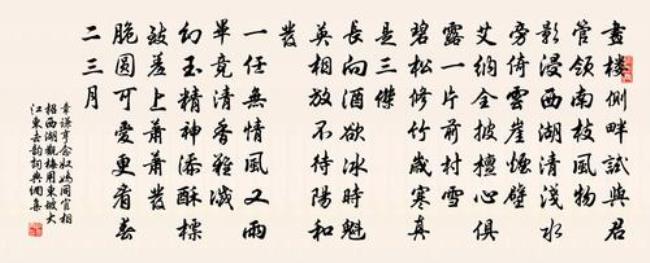 畫樓側畔試與君
管領南枝風物
影浸西湖清淺水
旁倚雲崖煙壁
艾納全披檀心俱
露一片前村雪
碧松修竹歲寒真
是三傑
長向酒欲冰時魁
英相放不待陽和
發
一任無情風又雨
畢竟清香難滅
幻玉精神添酥標
致羞上蕭蕭發
脆圓可愛更看春
二三月
章謙亨念奴嬌同官相
招西湖觀梅用東坡大
江東去韵詞典網集